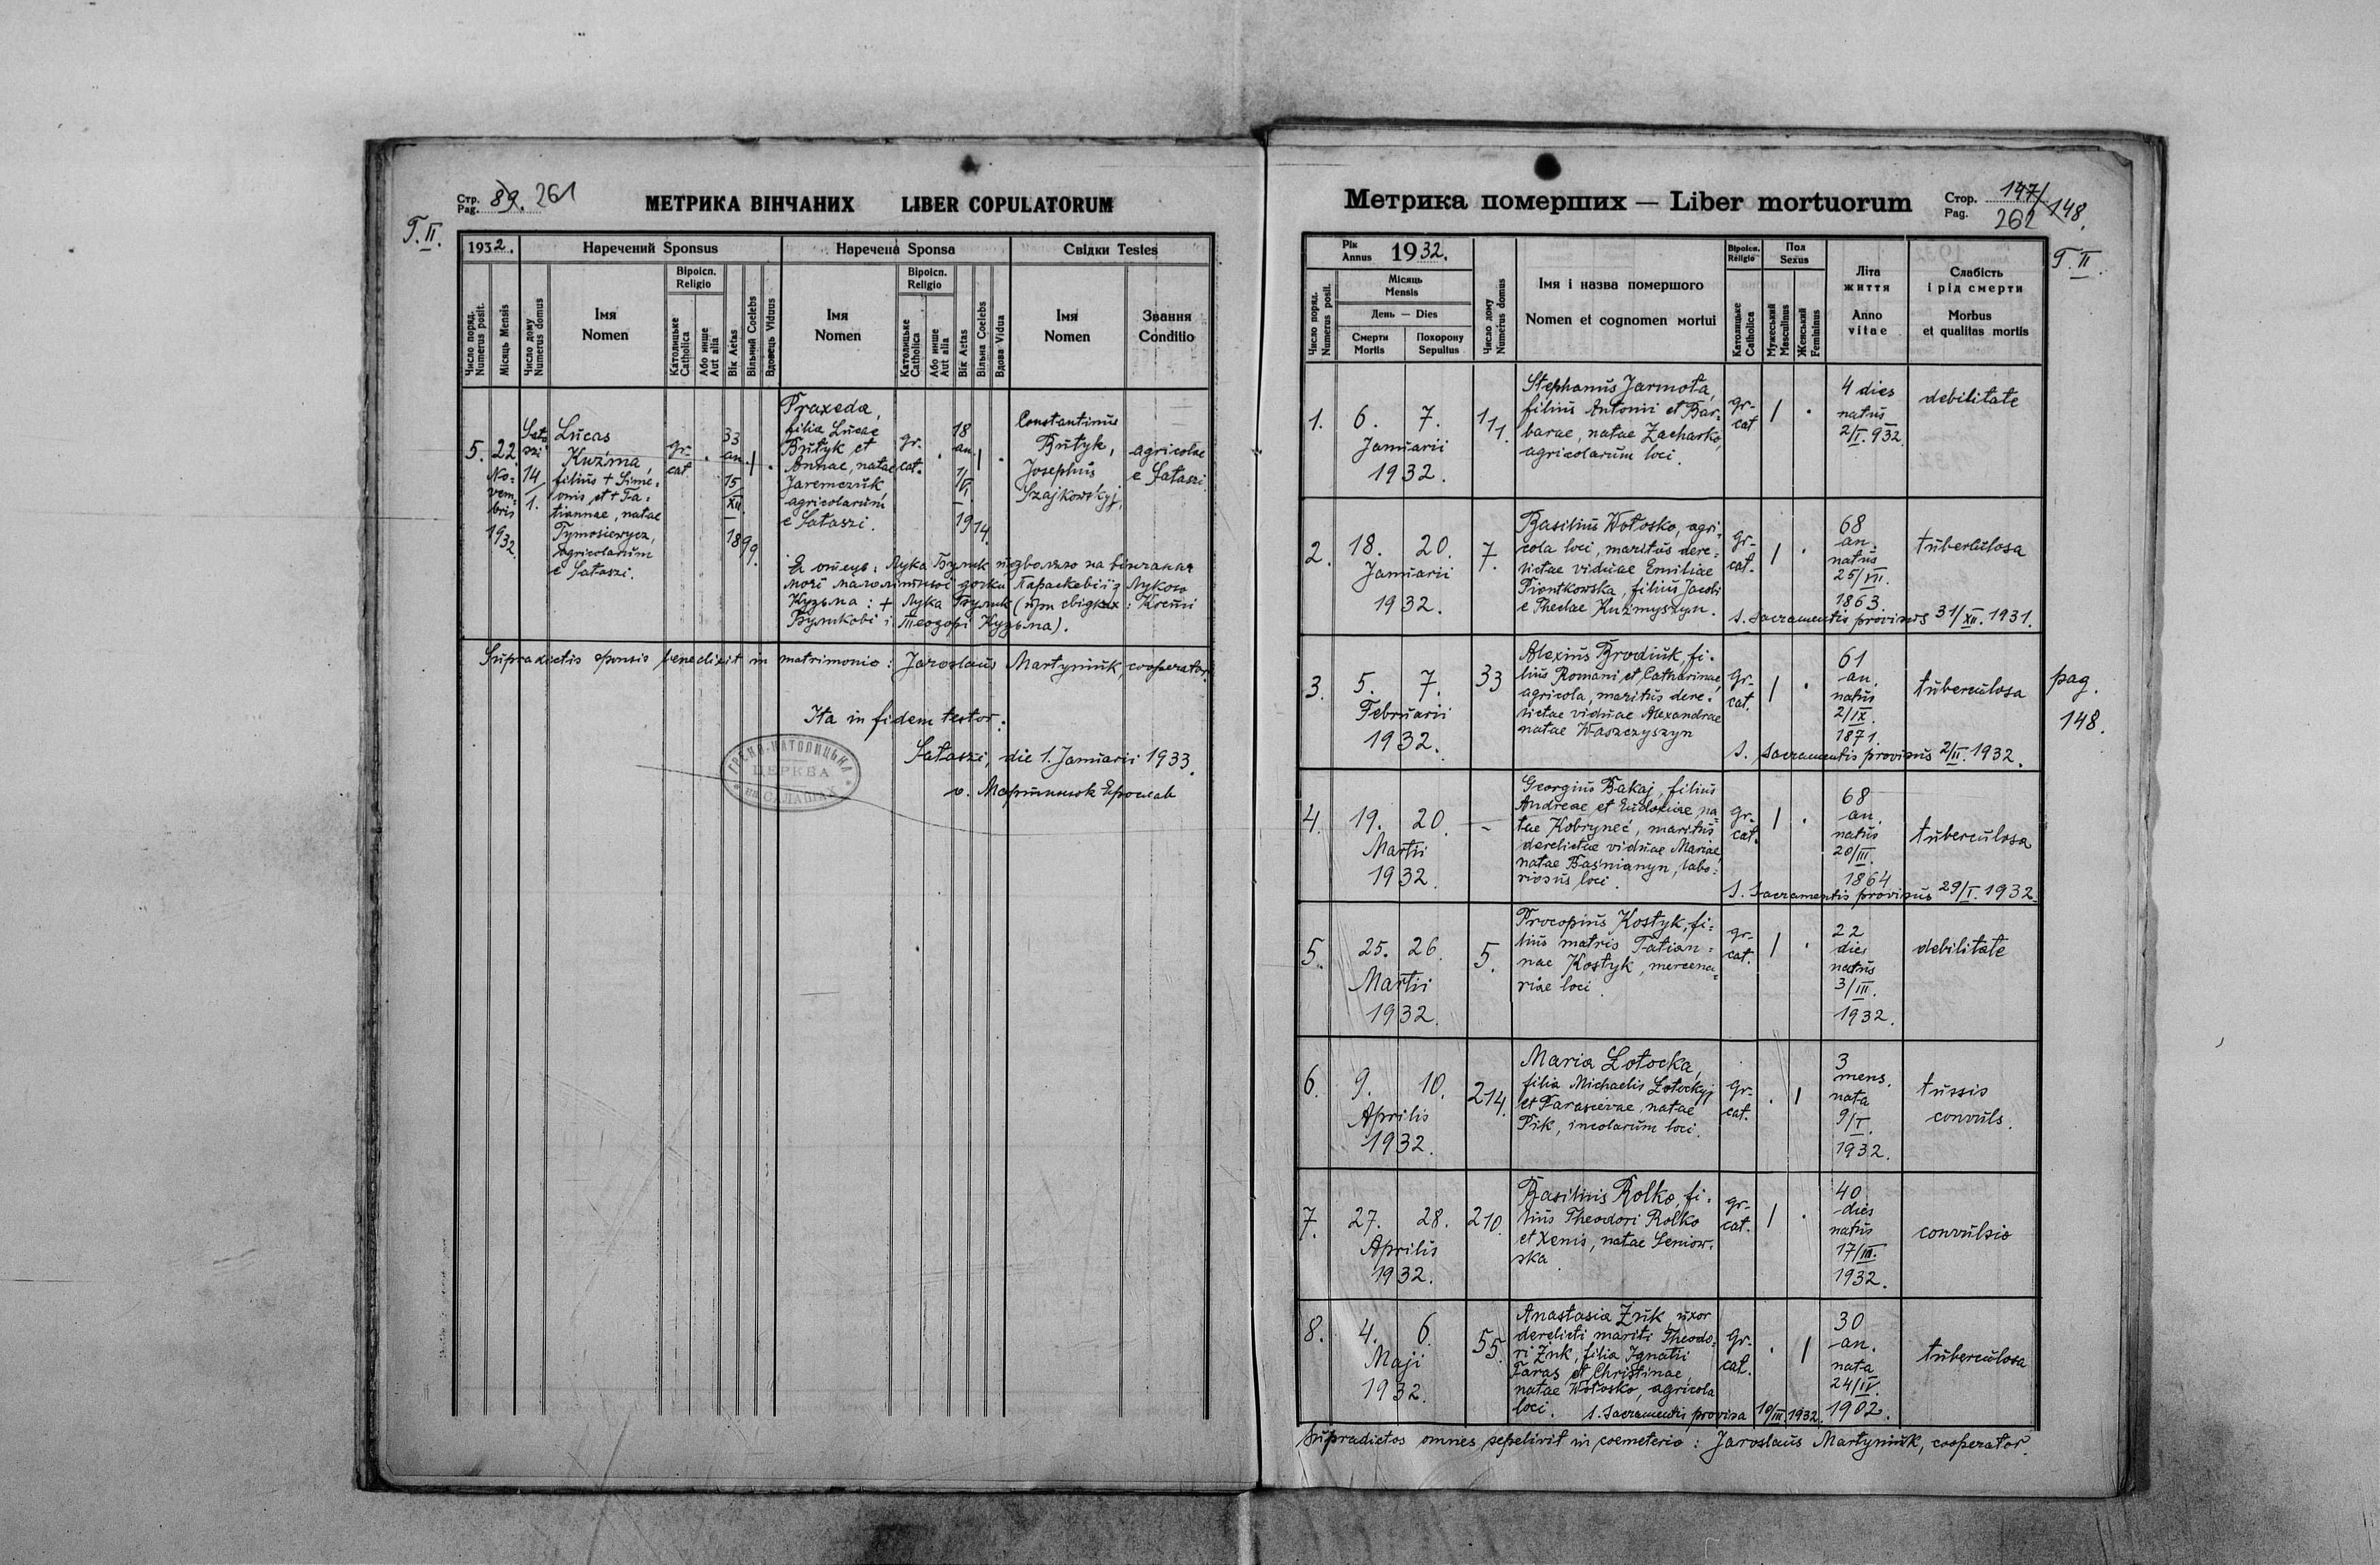 Стр. Pag. 89. 261
МЕТРИКА ВІНЧАНИХ LIBER COPULATORUM
T. II.
1932.
Наречений Sponsus
Наречена Sponsa
Свідки Testes
Число поряд. Numerus posit.
Місяць Mensis
Число дому Numerus domus
Імя
Nomen
Віроісп. Religio
Католицьке Catholica
Або инше Aut alia
Вік Aetas
Вільний Coelebs
Вдовець Viduus
Імя
Nomen
Віроісп. Religio
Католицьке Catholica
Або инше Aut alia
Вік Aetas
Вільна Coelebs
Вдова Vidua
Імя
Nomen
Звання
Conditio
5.
22.
No-
vem-
bris
1932.
Sata
szi
14
1.
Lucas
Kuźma,
filius + Sime-
onis et + Ta-
tiannae, natae
Tymosiewycz,
agricolarum
e Sataszi.
gr-
cat.
33
an.
15
XII
1899
Praxeda,
filia Lucae
Butyk et
Annae, natae
Jaremczuk
agricolarum
e Sataszi.
gr.
cat.
18
an.
1/
VI
1914.
Constantinus
Butyk,
Josephus
Szajkowskyj,
agricolae
e Sataszi
Я отець: Лука Бутик позволяю на вінчання
моєї малолітньої дочки Параскевії з Лукою
Кузьма: + Лука Бутик (при свідках: Ксеньї
Бутикові і Теодорі Кузьма).
Supradictis sponsis benedixit in matrimonio: Jaroslaus Martyniuk, cooperator.
Ita in fidem testor:
Sataszi, die 1. Januarii 1933.
о. Мартинюк Ярослав
ГРЕКО-КАТОЛИЦЬКА
ЦЕРКВА
на САЛАШАХ
Метрика померших — Liber mortuorum
Стор. Pag. 147/148.
262
T. II.
Рік Annus 1932.
Число поряд. Numerus posit.
Місяць
Mensis
День — Dies
Смерти Mortis
Похорону Sepultus
Число дому Numerus domus
Імя і назва помершого
Nomen et cognomen mortui
Віроісп. Religio
Католицьке Catholica
Пол Sexus
Мужеський Masculinus
Женський Femininus
Літа життя
Anno vitae
Слабість і рід смерти
Morbus et qualitas mortis
1.
6. 7.
Januarii
1932.
111.
Stephanus Jarmota,
filius Antonii et Bar-
barae, natae Zacharko,
agricolarum loci.
gr-
cat
4 dies
natus
2/I. 932.
debilitate
2.
18. 20.
Januarii
1932.
7.
Basilius Wotosko, agri-
cola loci, maritus dere-
lictae viduae Emiliae
Piontkowska, filius Jacobi
e Theclae Kuźmyszyn.
gr-
cat.
68
an.
natus
25/VII.
1863.
tuberculosa
S. Sacramentis provisus 31/XII. 1931.
3.
5. 7.
Februarii
1932.
33
Alexius Brodiuk, fi-
lius Romani et Catharinae,
agricola, maritus dere-
lictae viduae Alexandrae
natae Waszczyszyn
gr-
cat.
61
an.
natus
2/IX.
1871.
tuberculosa
S. Sacramentis provisus 2/II. 1932.
pag.
148.
4.
19. 20.
Martii
1932.
-
Georgius Bakaj, filius
Andreae et Eudoxiae, na-
tae Kobryneć, maritus
derelictae viduae Mariae,
natae Baśnianyn, labo-
riosus loci.
gr-
cat.
68
an.
natus
20/III.
1864
tuberculosa
S. Sacramentis provisus 29/I. 1932.
5.
25. 26.
Martii
1932.
5.
Procopius Kostyk, fi-
lius matris Tatian-
nae Kostyk, mercena-
riae loci.
gr-
cat.
22
dies
natus
3/III.
1932.
debilitate
6.
9. 10.
Aprilis
1932.
214.
Maria Łotocka,
filia Michaelis Łotockyj
et Parascevae, natae
Pik, incolarum loci.
gr-
cat.
3
mens.
nata
9/I.
1932.
tussis
convuls.
7.
27. 28.
Aprilis
1932.
210.
Basilius Rolko, fi-
lius Theodori Rolko
et Xenis, natae Seniow-
ska.
gr-
cat.
40
dies
natus
17/III.
1932.
convulsio
8.
4. 6.
Maji
1932.
55.
Anastasia Żuk, uxor
derelicti mariti Theodo-
ri Żuk, filia Ignatii
Taras, et Christinae,
natae Wotosko, agricola
loci.
gr.
cat.
30
an.
nata
24/IV.
1902.
tuberculosa
S. Sacramentis provisa 10/III. 1932.
Supradictos omnes sepelivit in coemeterio: Jaroslaus Martyniuk, cooperator.